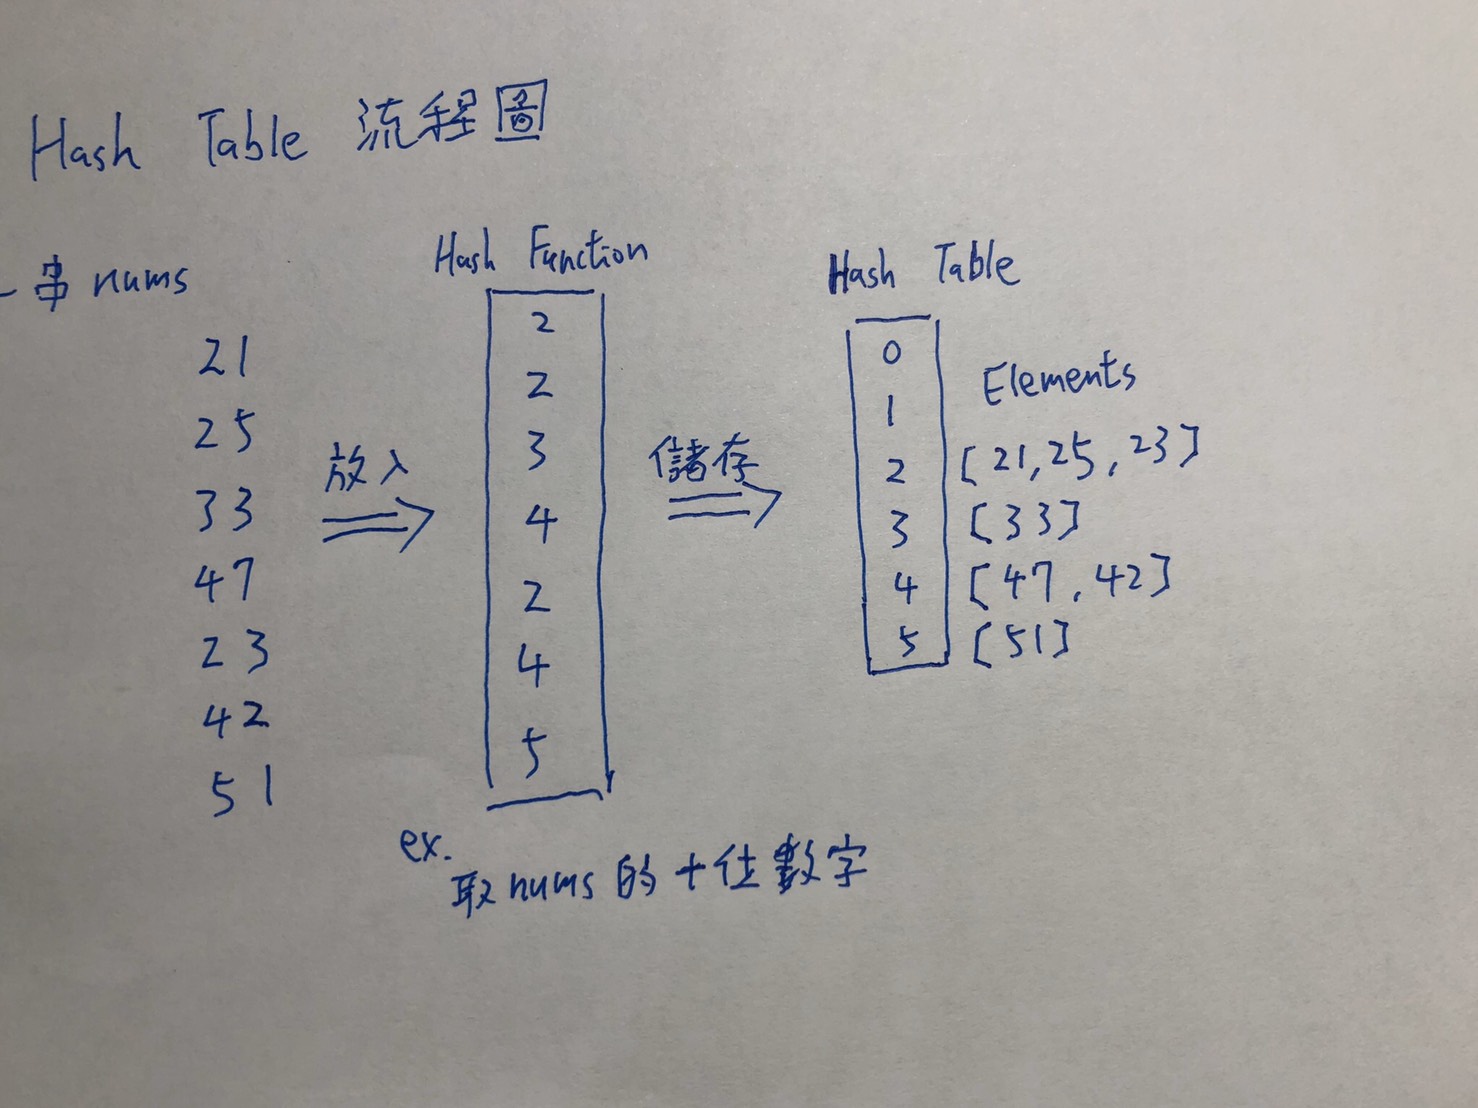 Hash Table 流程圖
一串 nums
21
25
33
47
23
42
51
放入
Hash Function
2
2
3
4
2
4
5
ex.
取 nums 的十位數字
儲存
Hash Table
Elements
0
1
2 [21,25,23]
3 [33]
4 [47,42]
5 [51]